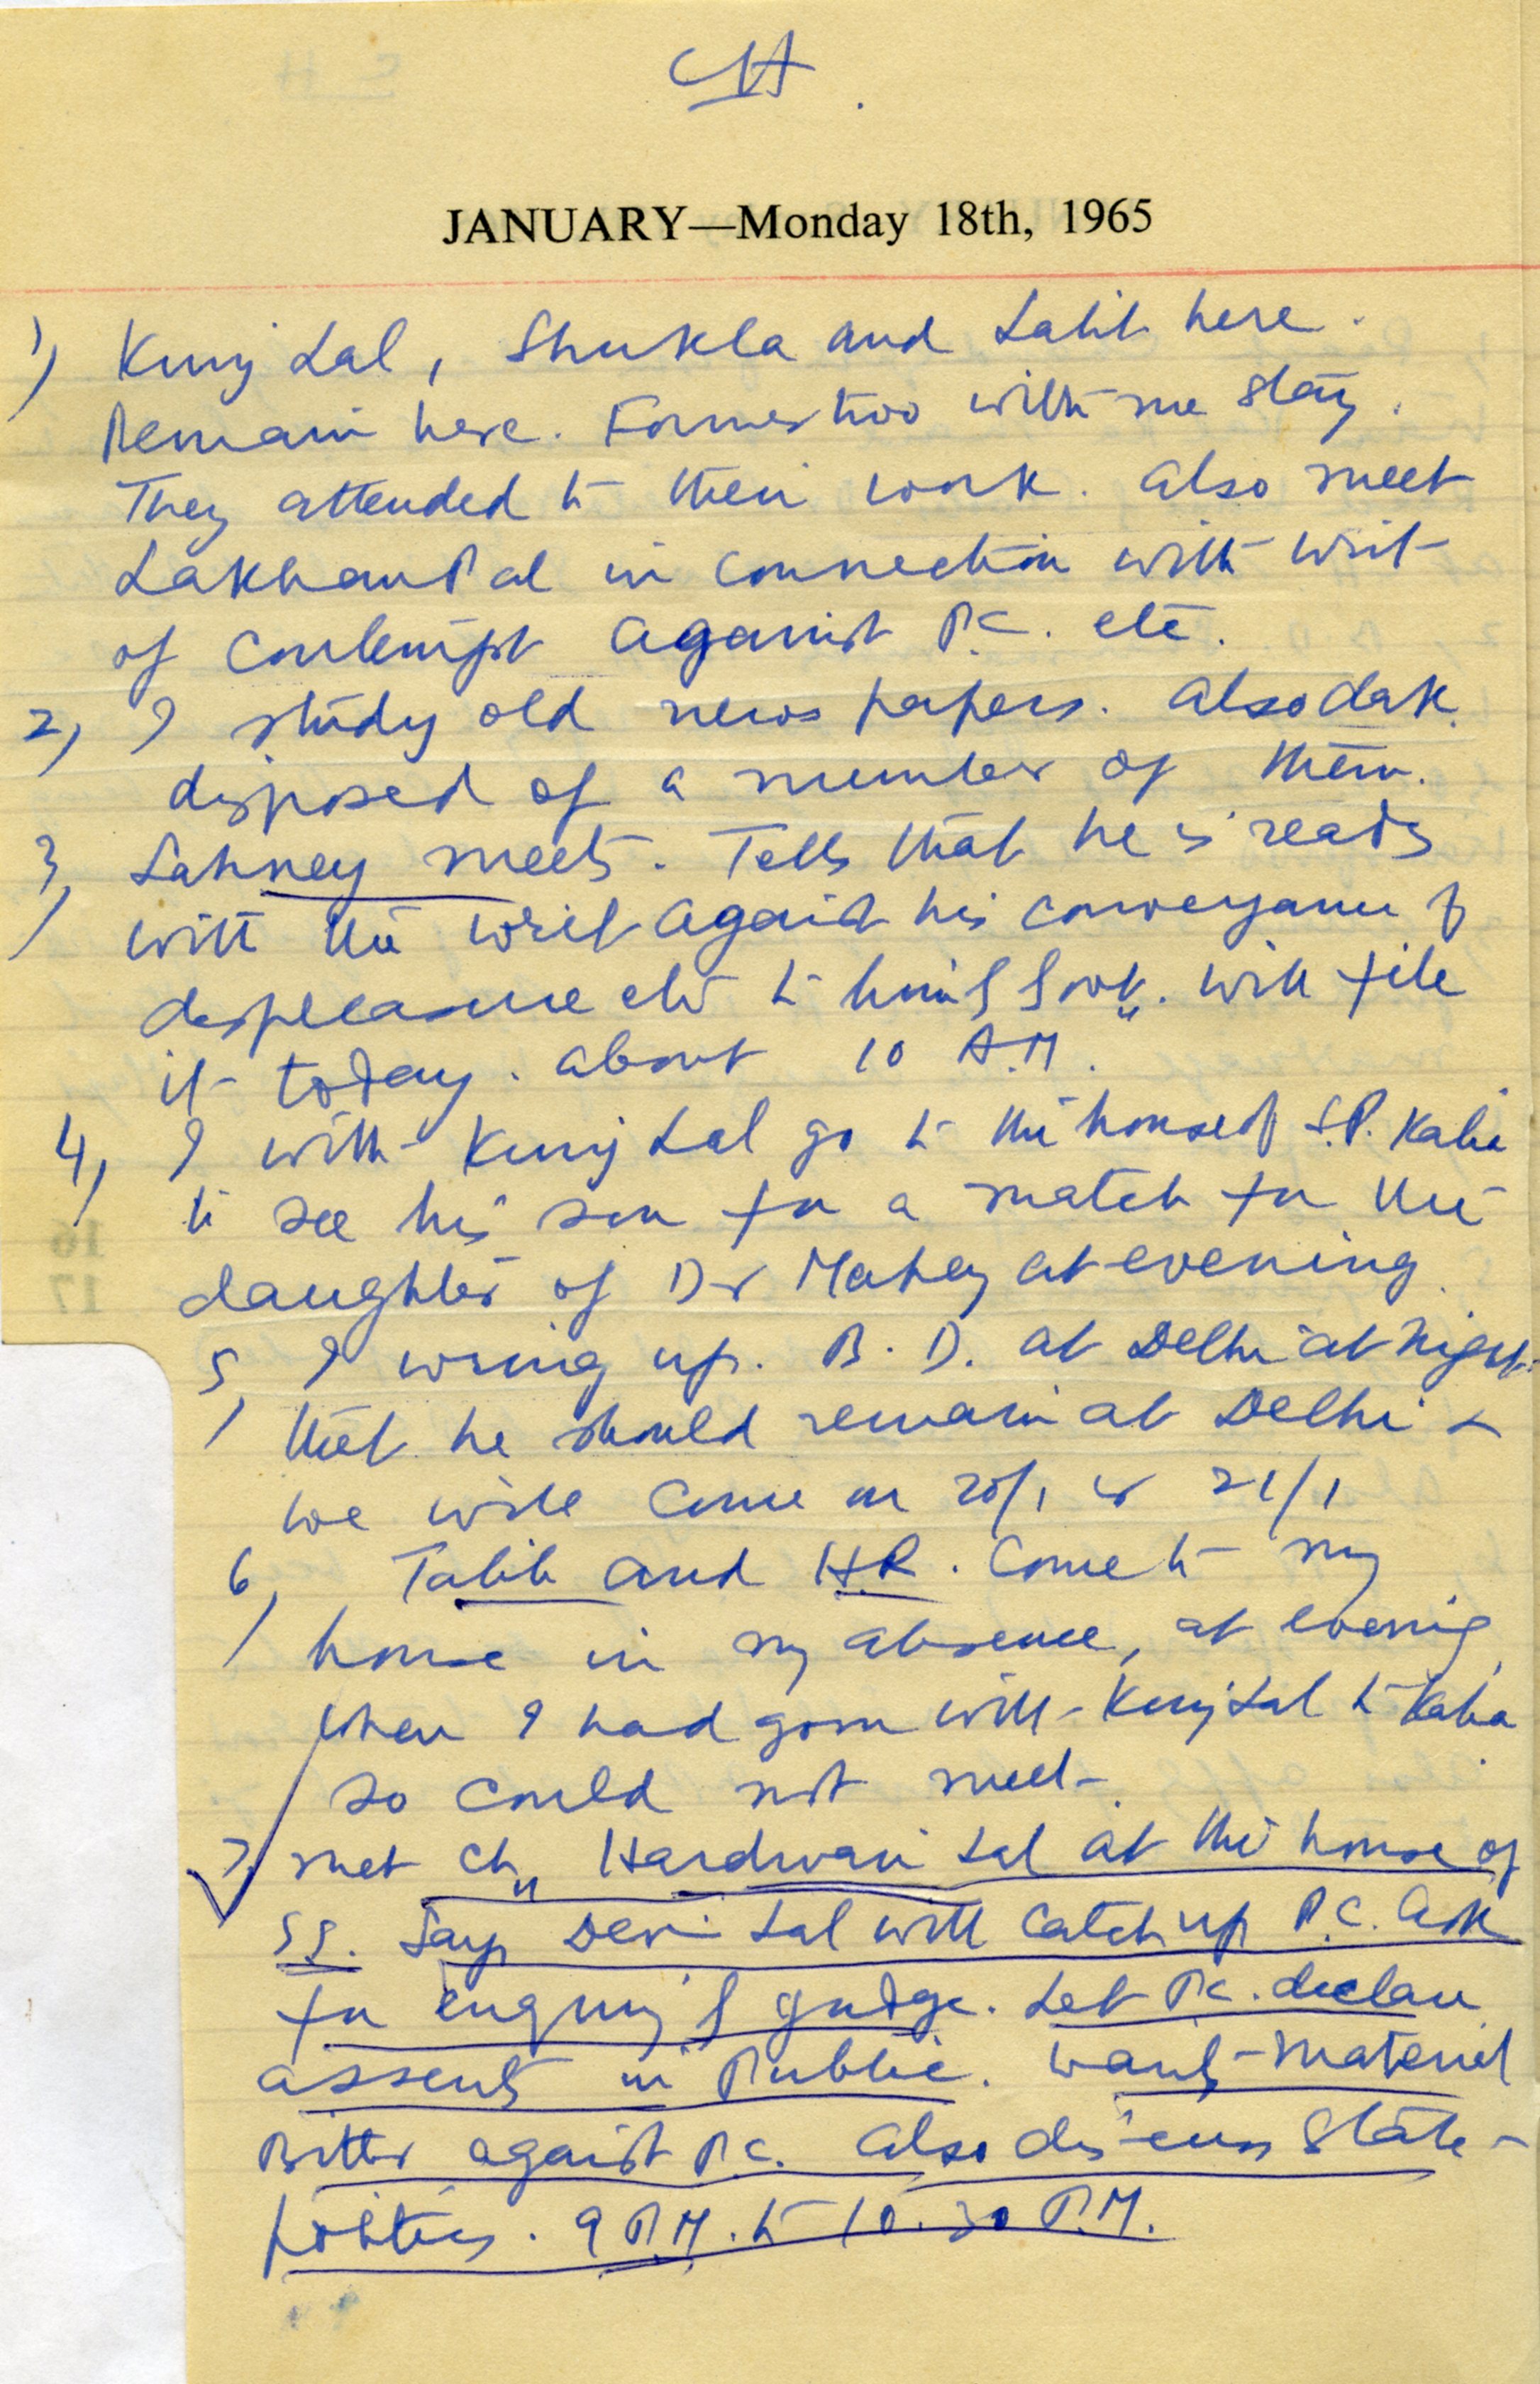 CH
JANUARY—Monday 18th, 1965
1) Kunj Lal, Shukla and Lalit here.
Remain here. Former two with me stay.
They attended to their work. Also meet
LakhanPal in connection with writ
of contempt against P.C. etc.
2) I study old news papers. Also dak
disposed of a number of them.
3) Sahney meets. Tells that he is ready
with the writ against his conveyance of
displeasure etc to him Govt. will file
it today. about 10 A.M.
4) I with Kunj Lal go to the house of S.P. Kalia
to see his son for a match for the
daughter of Dr at evening.
5) I wring up. B.D. at Delhi at night
that he should remain at Delhi &
we will come on 20/1 or 21/1
6) Talib and H.R. Come to my
house in my absence, at evenig
when I had gon with Kunj Lal to Kalia
so could not meet.
7) met Ch. Hardwari Lal at the house of
SS. Says Devi Lal will catch up P.C. Ask
for enquiry of Judge. Let P.C. declare
assents in Public. Wants material
Bitter against P.C. Also discuss State
politics. 9 P.M. to 10.30 P.M.